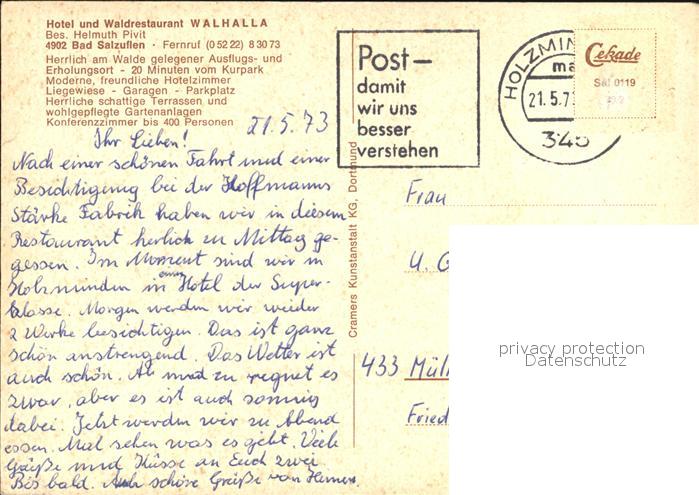 Hotel und Waldrestaurant WALHALLA
Bes. Helmuth Pivit
4902 Bad Salzuflen · Fernruf (0 52 22) 8 30 73
Herrlich am Walde gelegener Ausflugs- und
Erholungsort - 20 Minuten vom Kurpark
Moderne, freundliche Hotelzimmer
Liegewiese - Garagen - Parkplatz
Herrliche schattige Terrassen und
wohlgepflegte Gartenanlagen
Konferenzzimmer bis 400 Personen
21.5.73
Ihr Lieben!
Nach einer schönen Fahrt und einer
Besichtigung bei der Hoffmanns
Stärke Fabrik haben wir in diesem
Restaurant herlich zu Mittag ge-
gessen. Im Moment sind wir in
Holzminden in einem Hotel der Super-
klasse. Morgen werden wir wieder
2 Werke besichtigen. Das ist ganz
schön anstrengend. Das Wetter ist
auch schön. Ab und zu regnet es
zwar, aber es ist auch sonnig
dabei. Jetzt werden wir zu Abend
essen. Mal sehen was es gibt. Viele
Grüße und Küsse an Euch zwei
Bis bald. Auch schöne Grüße von
Cramers Kunstanstalt KG, Dortmund
Post-
damit
wir uns
besser
verstehen
HOLZMIN
21.5.73
345
Cekade
S&l 0119
Frau
U. G
433 Mül
Fried
privacy protection
Datenschutz